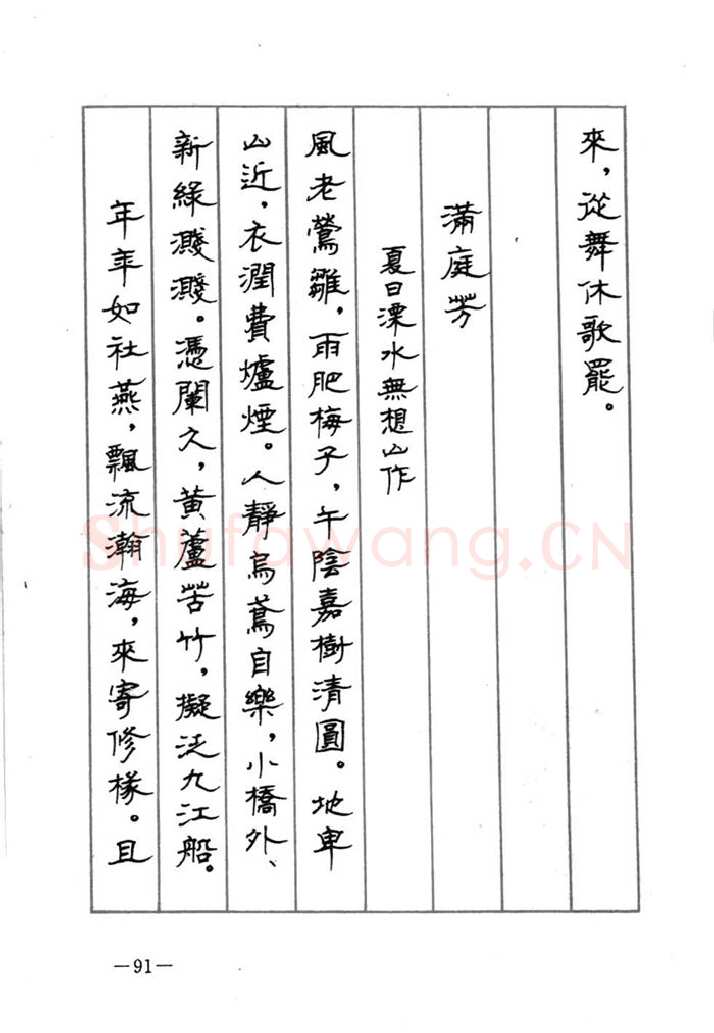 來，從舞休歌罷。
滿庭芳
夏日溧水無想山作
風老鶯雛，雨肥梅子，午陰嘉樹清圓。地卑
山近，衣潤費爐煙。人靜烏鳶自樂，小橋外、
新綠濺濺。憑闌久，黃蘆苦竹，擬泛九江船。
年年如社燕，飄流瀚海，來寄修椽。且
—91—
Shufawang.CN